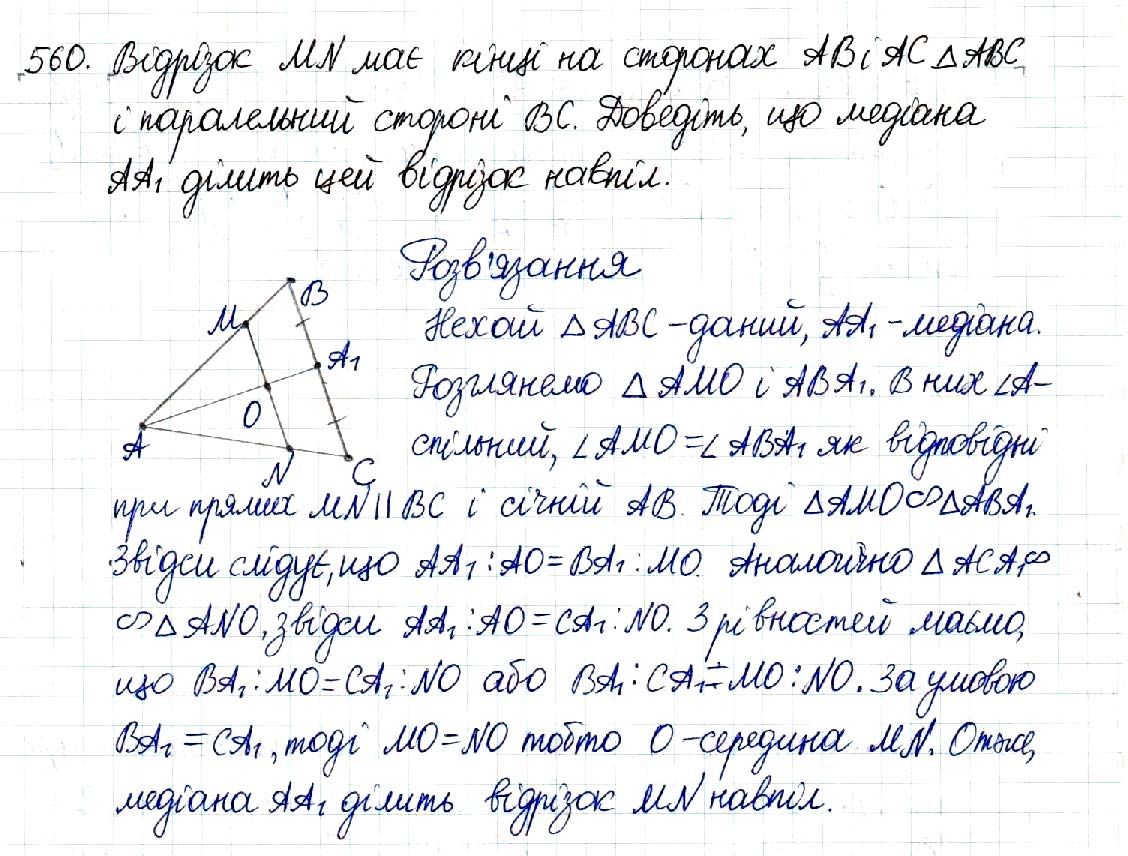 560. Відрізок MN має кінці на сторонах AB і AC △ABC
і паралельний стороні BC. Доведіть, що медіана
AA₁ ділить цей відрізок навпіл.
Розв'язання
B
M
A₁
O
A
N
C
Нехай △ABC - даний, AA₁ - медіана.
Розглянемо △AMO і ABA₁. В них ∠A-
спільний, ∠AMO = ∠ABA₁ як відповідні
при прямих MN || BC і січній AB. Тоді △AMO ∽ △ABA₁.
Звідси слідує, що AA₁ : AO = BA₁ : MO. Аналогічно △ACA₁ ∽
∽ △ANO, звідси AA₁ : AO = CA₁ : NO. З рівностей маємо,
що BA₁ : MO = CA₁ : NO або BA₁ : CA₁ = MO : NO. За умовою
BA₁ = CA₁, тоді MO = NO тобто O - середина MN. Отже,
медіана AA₁ ділить відрізок MN навпіл.